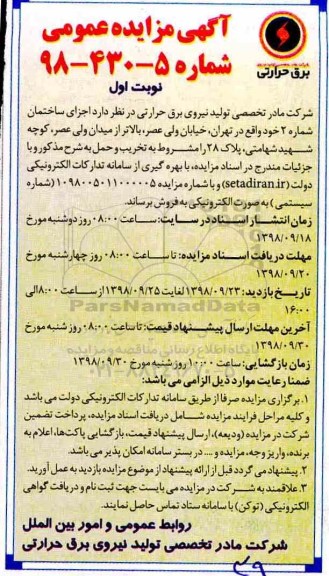 آگهی مزایده عمومی
شماره ۵-۴۳۰-۹۸
برق حرارتی
نوبت اول
شرکت مادر تخصصی تولید نیروی برق حرارتی در نظر دارد اجزای ساختمان
شماره ۲ خود واقع در تهران، خیابان ولی عصر، بالاتر از میدان ولی عصر، کوچه
شهید شهامتی، پلاک ۲۸ را مشروط به تخریب و حمل به شرح مذکور و با
جزئیات مندرج در اسناد مزایده، با بهره گیری از سامانه تدارکات الکترونیکی
دولت (setadiran.ir) و با شماره مزایده ۱۰۹۸۰۰۵۰۱۱۰۰۰۰۰۵ (شماره
سیستمی) به صورت الکترونیکی به فروش برساند.
زمان انتشار اسناد در سایت: ساعت ۰۸:۰۰ روز دوشنبه مورخ
۱۳۹۸/۰۹/۱۸
مهلت دریافت اسناد مزایده: تا ساعت ۰۸:۰۰ روز چهارشنبه مورخ
۱۳۹۸/۰۹/۲۰
تاریخ بازدید: ۱۳۹۸/۰۹/۲۳ لغایت ۱۳۹۸/۰۹/۲۵ از ساعت ۸:۰۰ الی
۱۶:۰۰
آخرین مهلت ارسال پیشنهاد قیمت: تا ساعت ۰۸:۰۰ روز شنبه مورخ
۱۳۹۸/۰۹/۳۰
زمان بازگشایی: ساعت ۱۰:۰۰ روز شنبه مورخ ۱۳۹۸/۰۹/۳۰
ضمنا رعایت موارد ذیل الزامی می باشد:
۱. برگزاری مزایده صرفا از طریق سامانه تدارکات الکترونیکی دولت می باشد
و کلیه مراحل فرایند مزایده شامل دریافت اسناد مزایده، پرداخت تضمین
شرکت در مزایده (ودیعه)، ارسال پیشنهاد قیمت، بازگشایی پاکت‌ها، اعلام به
برنده، واریز وجه، مزایده و .... در بستر سامانه امکان پذیر می باشد.
۲. پیشنهاد می گردد قبل از ارائه پیشنهاد از موضوع مزایده بازدید به عمل آورید.
۳. علاقمند به شرکت در مزایده می بایست جهت ثبت نام و دریافت گواهی
الکترونیکی (توکن) با سامانه ستاد تماس حاصل نمایند.
روابط عمومی و امور بین الملل
شرکت مادر تخصصی تولید نیروی برق حرارتی